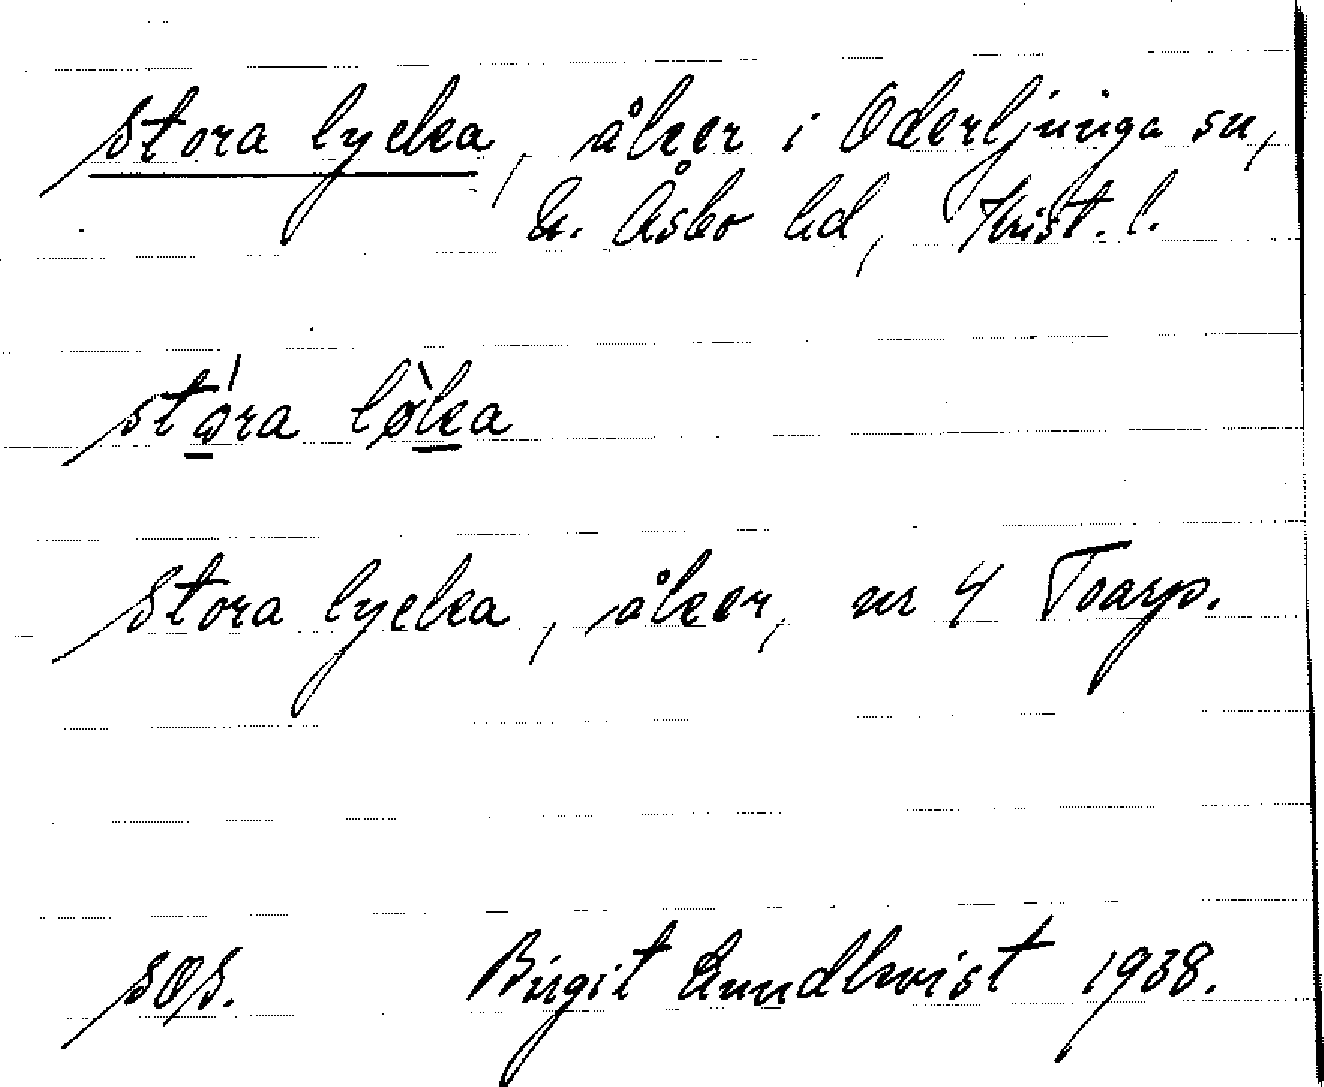 Stora lycka, åker i Oderljunga sn,
N. Åsbo hd, Krist. l.
stǿra lø̀ka
Stora lycka, åker, nr 4 Toarp.
SOS. Birgit Lundkvist 1938.